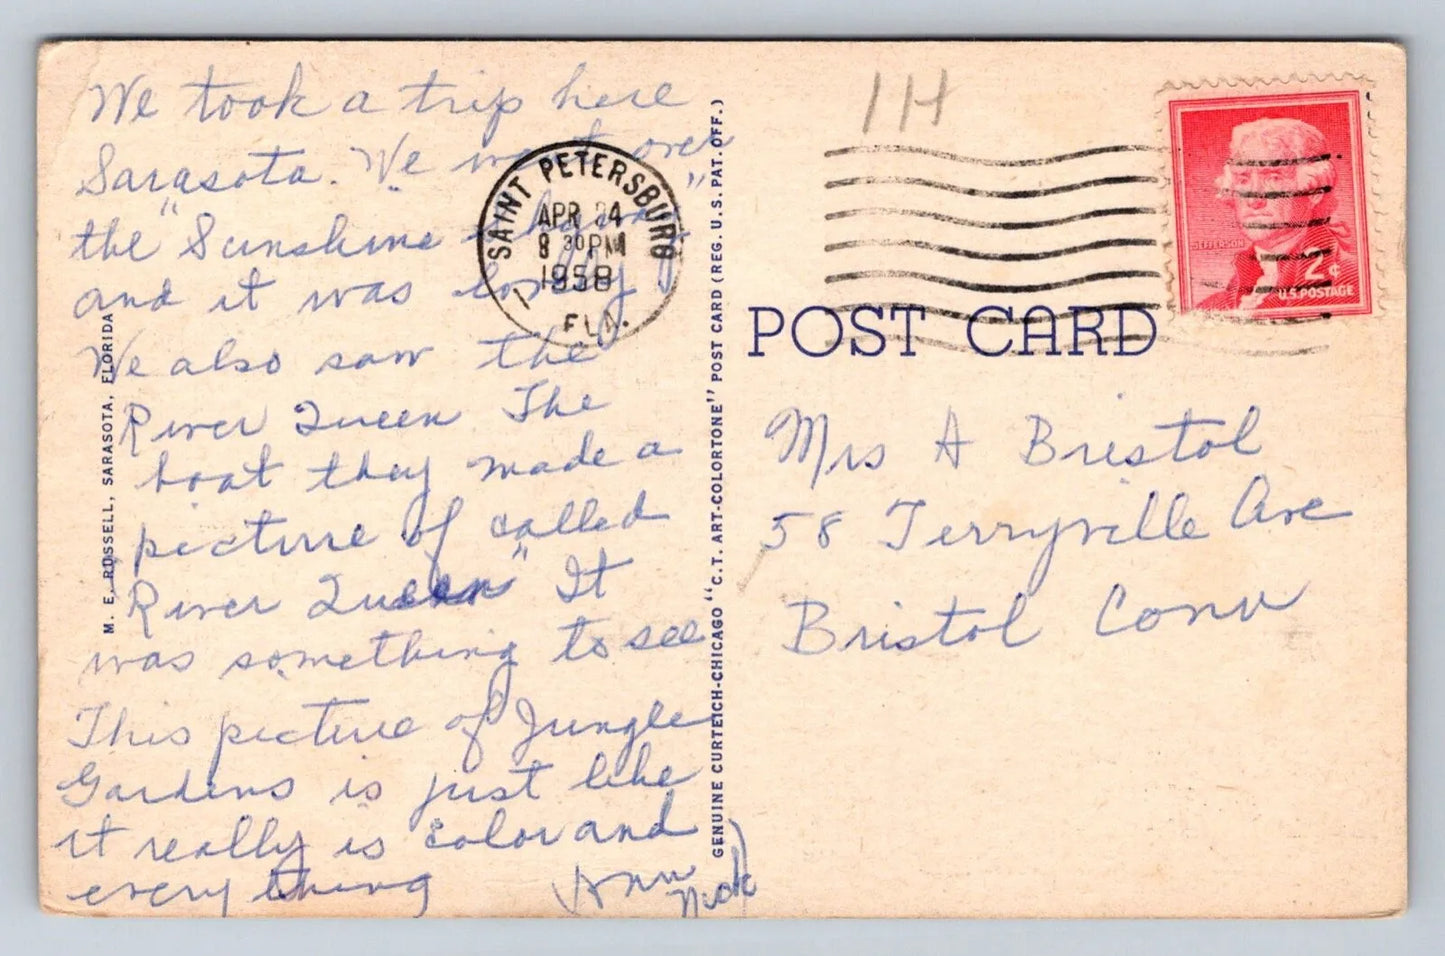 We took a trip here
Sarasota. We went over
the "Sunshine Skyway"
and it was lovely
We also saw the
River Queen The
boat they made a
picture of called
River Queen" It
was something to see
This picture of Jungle
Gardens is just like
it really is color and
every thing
Ann
Nick
SAINT PETERSBURG
APR 24
8 30 PM
1958
FLA.
M. E. RUSSELL, SARASOTA, FLORIDA
GENUINE CURTEICH-CHICAGO "C.T. ART-COLORTONE" POST CARD (REG. U.S. PAT. OFF.)
1H
JEFFERSON
2¢
U.S. POSTAGE
POST CARD
Mrs A Bristol
58 Terryville Ave
Bristol Conn